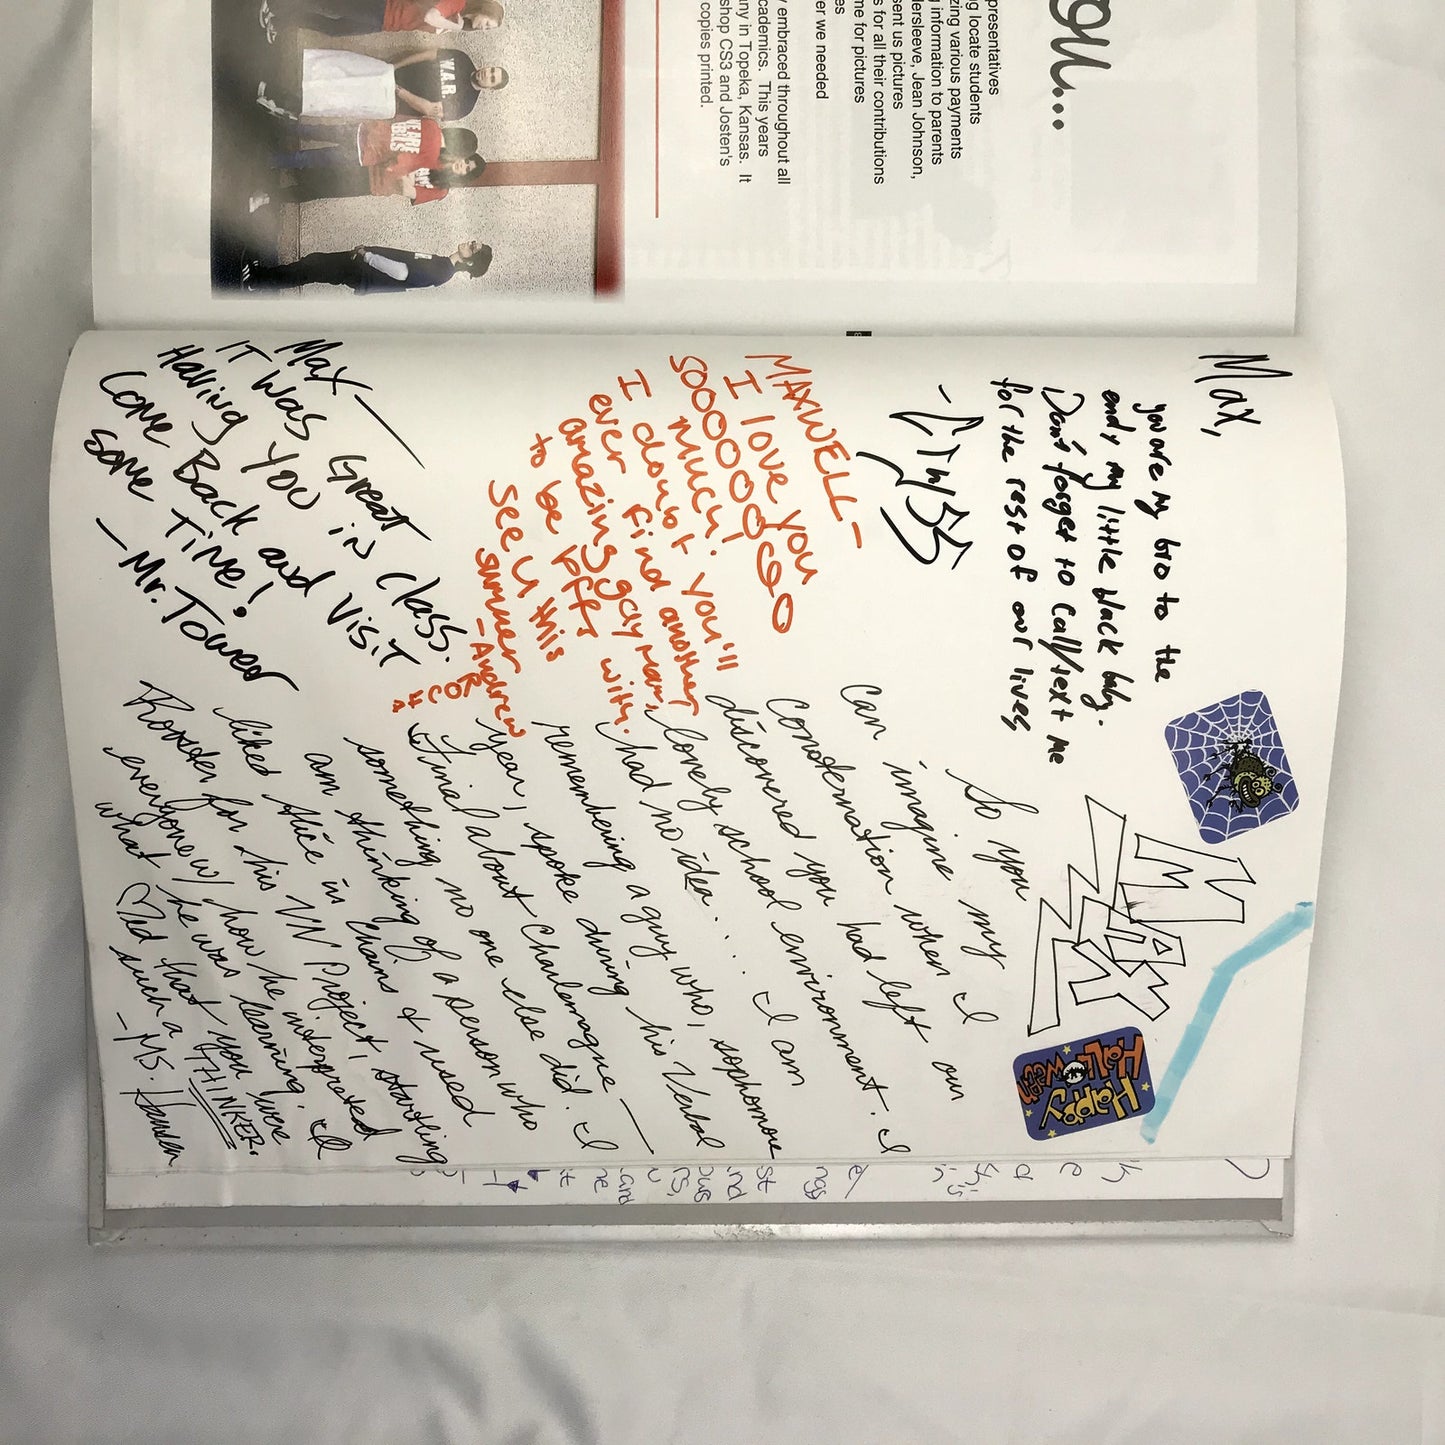 you...
presentatives
g locate students
zing various payments
g information to parents
dersleeve, Jean Johnson,
sent us pictures
s for all their contributions
me for pictures
er we needed
es
y embraced throughout all
academics. This years
ny in Topeka, Kansas. It
shop CS3 and Josten's
copies printed.
W.A.R.
Max,
you are my bro to the
end, my little black baby.
Don't forget to call/text me
for the rest of our lives
MAXWELL-
I love you
SOOOOOOOOO
much!
I doubt you'll
ever find another
amazing gay man,
to be bffs with.
See u this
summer
-Andrew
Max—
IT was Great
Having you in class.
Come Back and Visit
some Time!
-Mr. Tower
MAX
Happy
Halloween
So you
can imagine my
consternation when I
discovered you had left our
lovely school environment. I
had no idea.... I am
remembering a guy who, sophomore
year, spoke during his Verbal
Final about Charlemagne—
something no one else did. I
am thinking of a person who
liked Alice in Chains & used
Rooster for his VN Project, startling
everyone w/ how he interpreted
what he was learning. I
♡'d that you were
such a THINKER.
-Ms. Hamdan